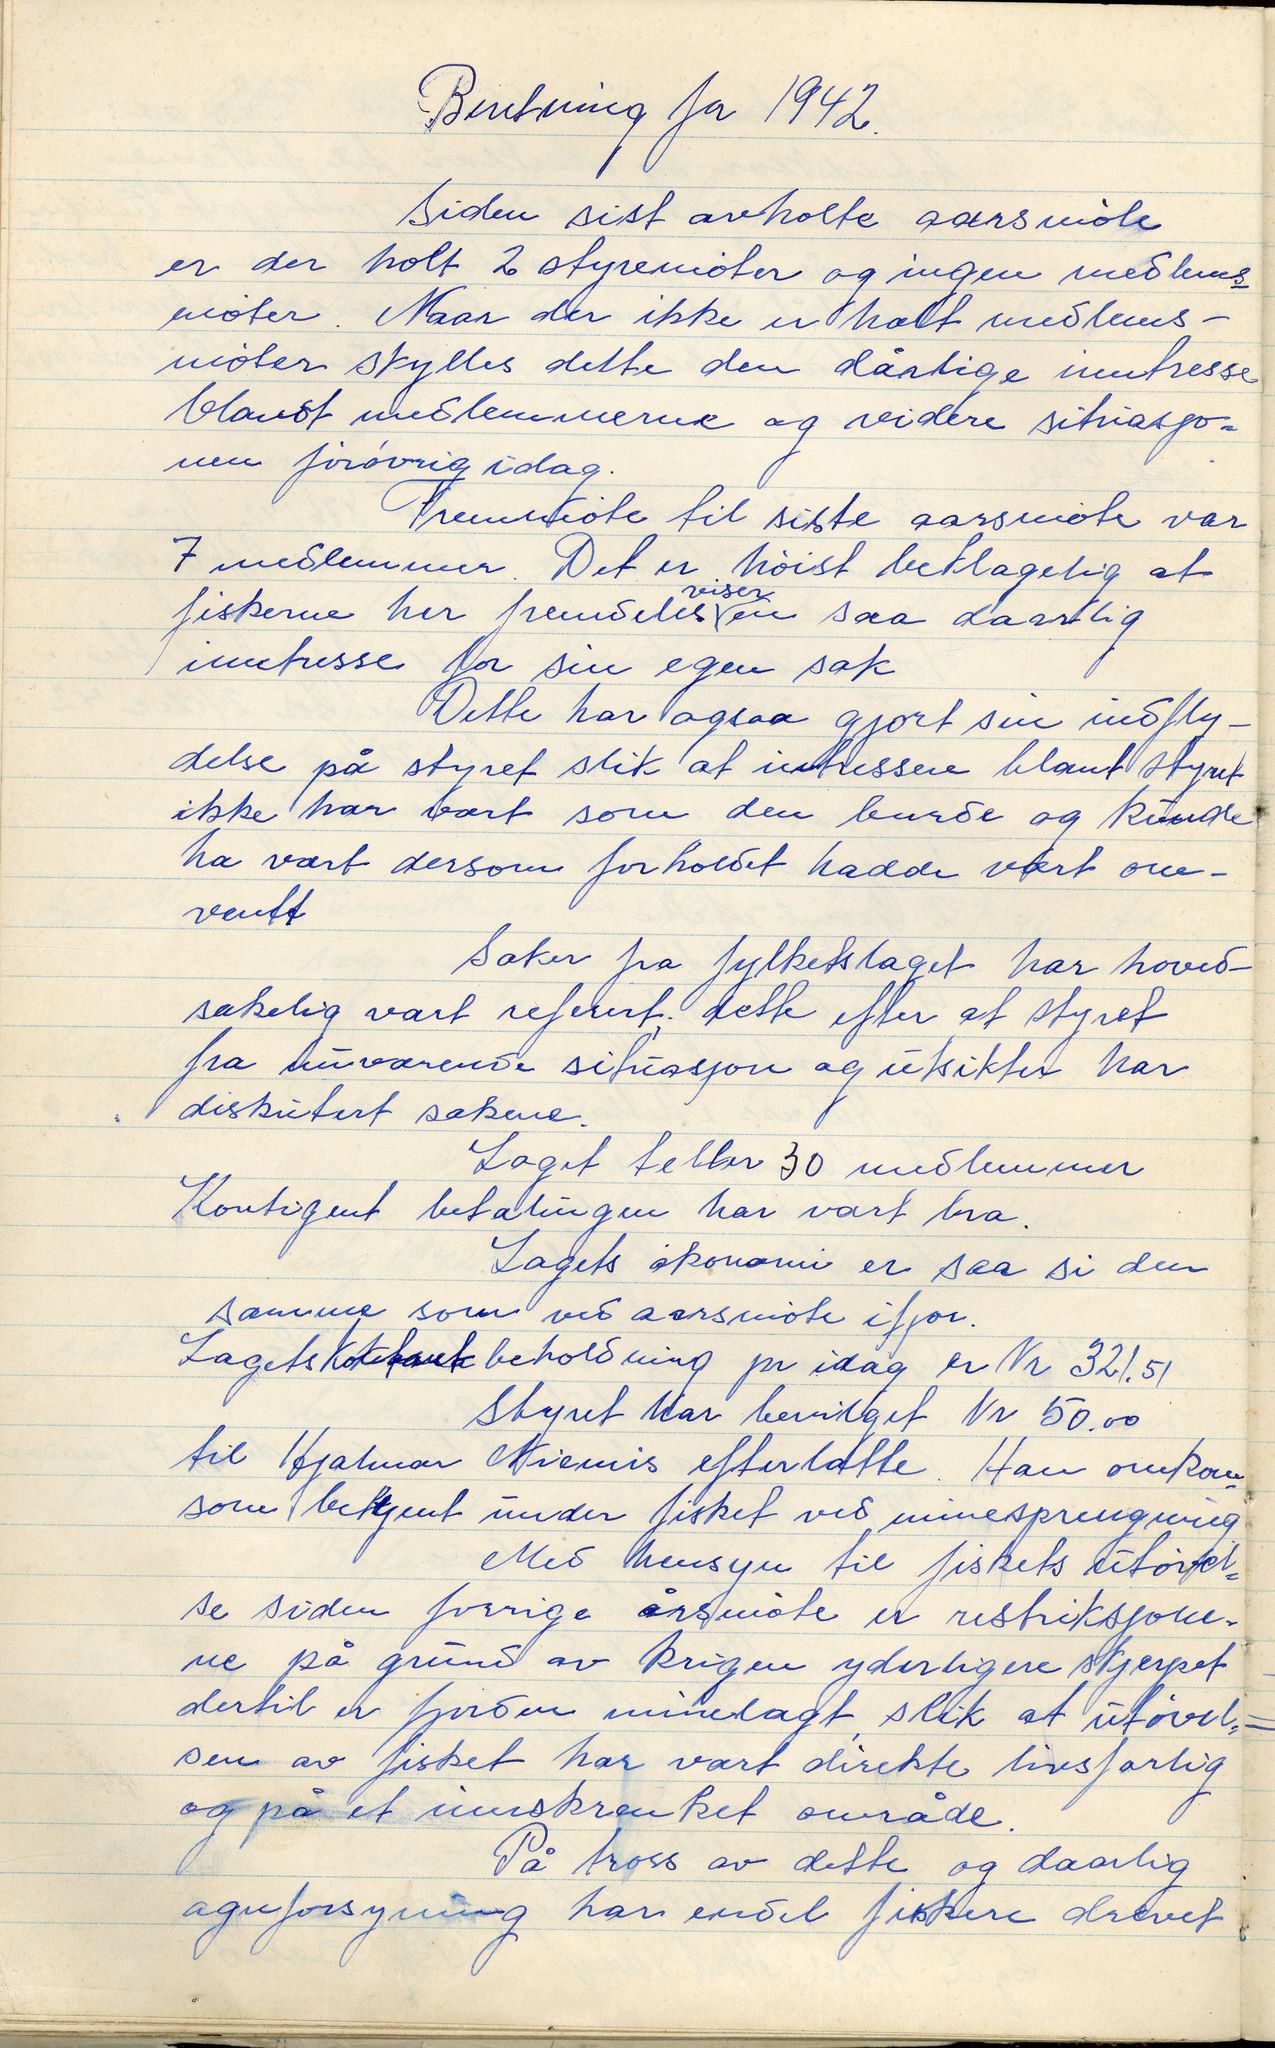 Beretning for 1942.
Siden sist avholte aarsmöte
er der holt 2 styremöter og ingen medlems-
möter. Naar der ikke er holt medlems-
möter skylles dette den dårlige inntresse
blandt medlemmerne og videre situasjo-
nen forövrig idag.
Fremmöte til siste aarsmöte var
7 medlemmer. Det er höist beklagelig at
viser
fiskerne her fremdeles en saa daarlig
inntresse for sin egen sak
Dette har ogsaa gjort sin indfly-
delse på styret slik at intressen blant styret
ikke har vært som den burde og kunde
ha vært dersom forholdet hadde vært om-
ventt
Saker fra fylketslaget har hoved-
sakelig vært referert, dette efter at styret
fra nuværende situasjon og utsikter har
diskutert sakene.
Laget teller 30 medlemmer
Kontigent betalingen har vært bra.
Lagets ökonomi er saa si den
samme som ved aarsmöte ifjor.
Lagets beholdning pr idag er Kr 321.51
Styret har bevilget Kr 50.00
til Hjalmar Niemis efterlatte. Han omkom
som bekjent under fisket ved minesprengning
Med hensyn til fiskets utövel-
se siden forrige årsmöte er restriksjone-
ne på grund av krigen yderligere skjerpet
dertil er fjorden minelagt, slik at utövel-
sen av fisket har vært direkte livsfarlig
og på et innskrenket område.
På tross av dette og daarlig
agnforsyning har endel fiskere drevet